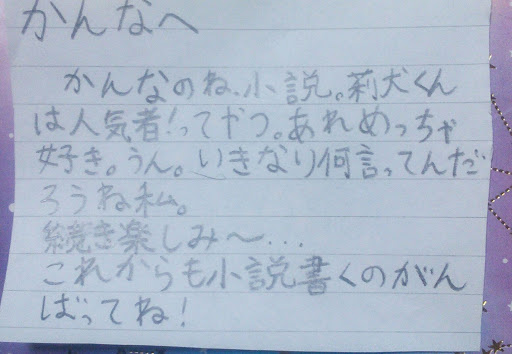 かんなへ
かんなのね、小説。莉犬くん
は人気者!ってやつ。あれめっちゃ
好き。うん。いきなり何言ってんだ
ろうね私。
続き楽しみ〜…
これからも小説書くのがん
ばってね!